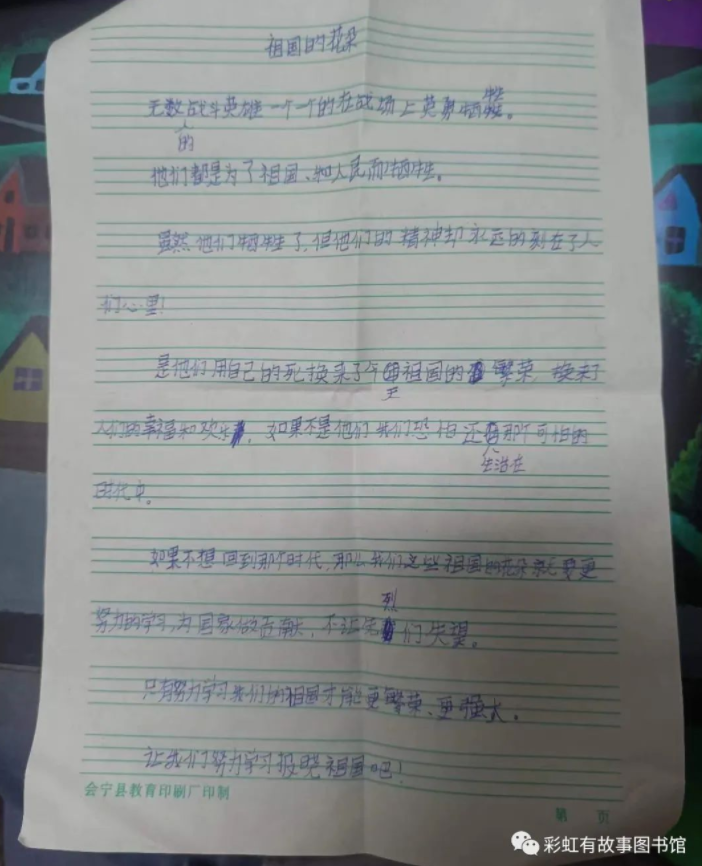 祖国的花朵
无数的战斗英雄一个一个的在战场上英勇牺牲。
他们都是为了祖国、和人民而牺牲。
虽然他们牺牲了,但他们的精神却永远的刻在了人
们心里!
是他们用自己的死换来了今天祖国的繁荣,换来了
人们的幸福和欢乐,如果不是他们我们恐怕还生活在那个可怕的
时代中。
如果不想回到那个时代,那么我们这些祖国的花朵就要更
努力的学习,为国家做贡献,不让先烈们失望。
只有努力学习我们的祖国才能更繁荣、更强大。
让我们努力学习报晓祖国吧!
会宁县教育印刷厂印制
第 页
彩虹有故事图书馆